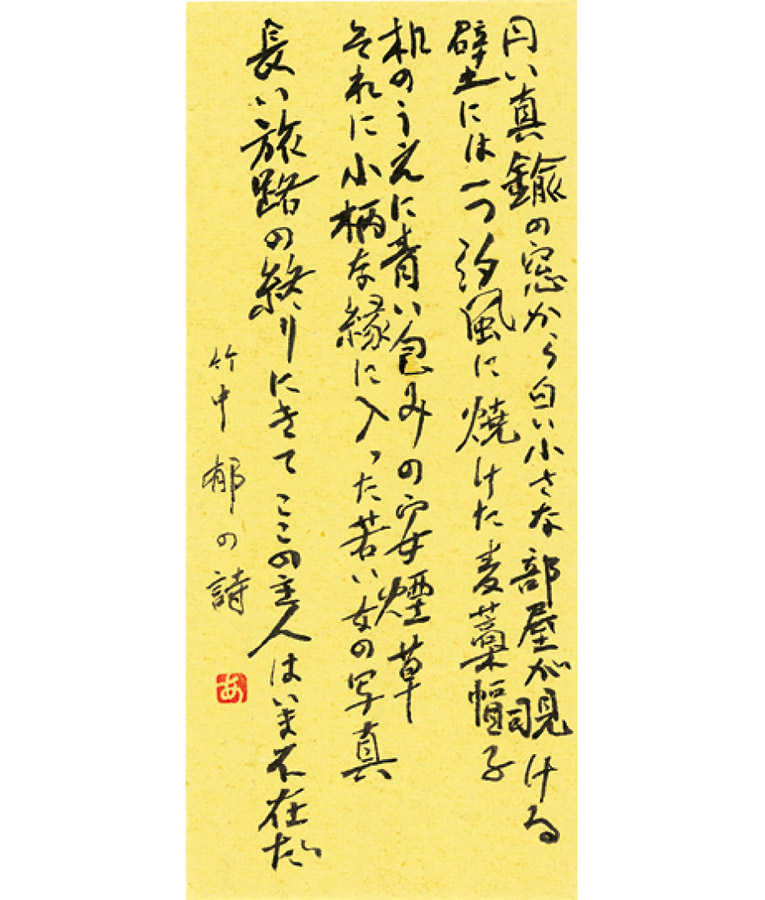 円い真鍮の窓から白い小さな部屋が覗ける
壁には一つ汐風に焼けた麦藁帽子
机のうえに青い包みの安煙草
それに小柄な縁に入った若い女の写真
長い旅路の終りにきてここの主人はいま不在だ
竹中郁の詩
あ